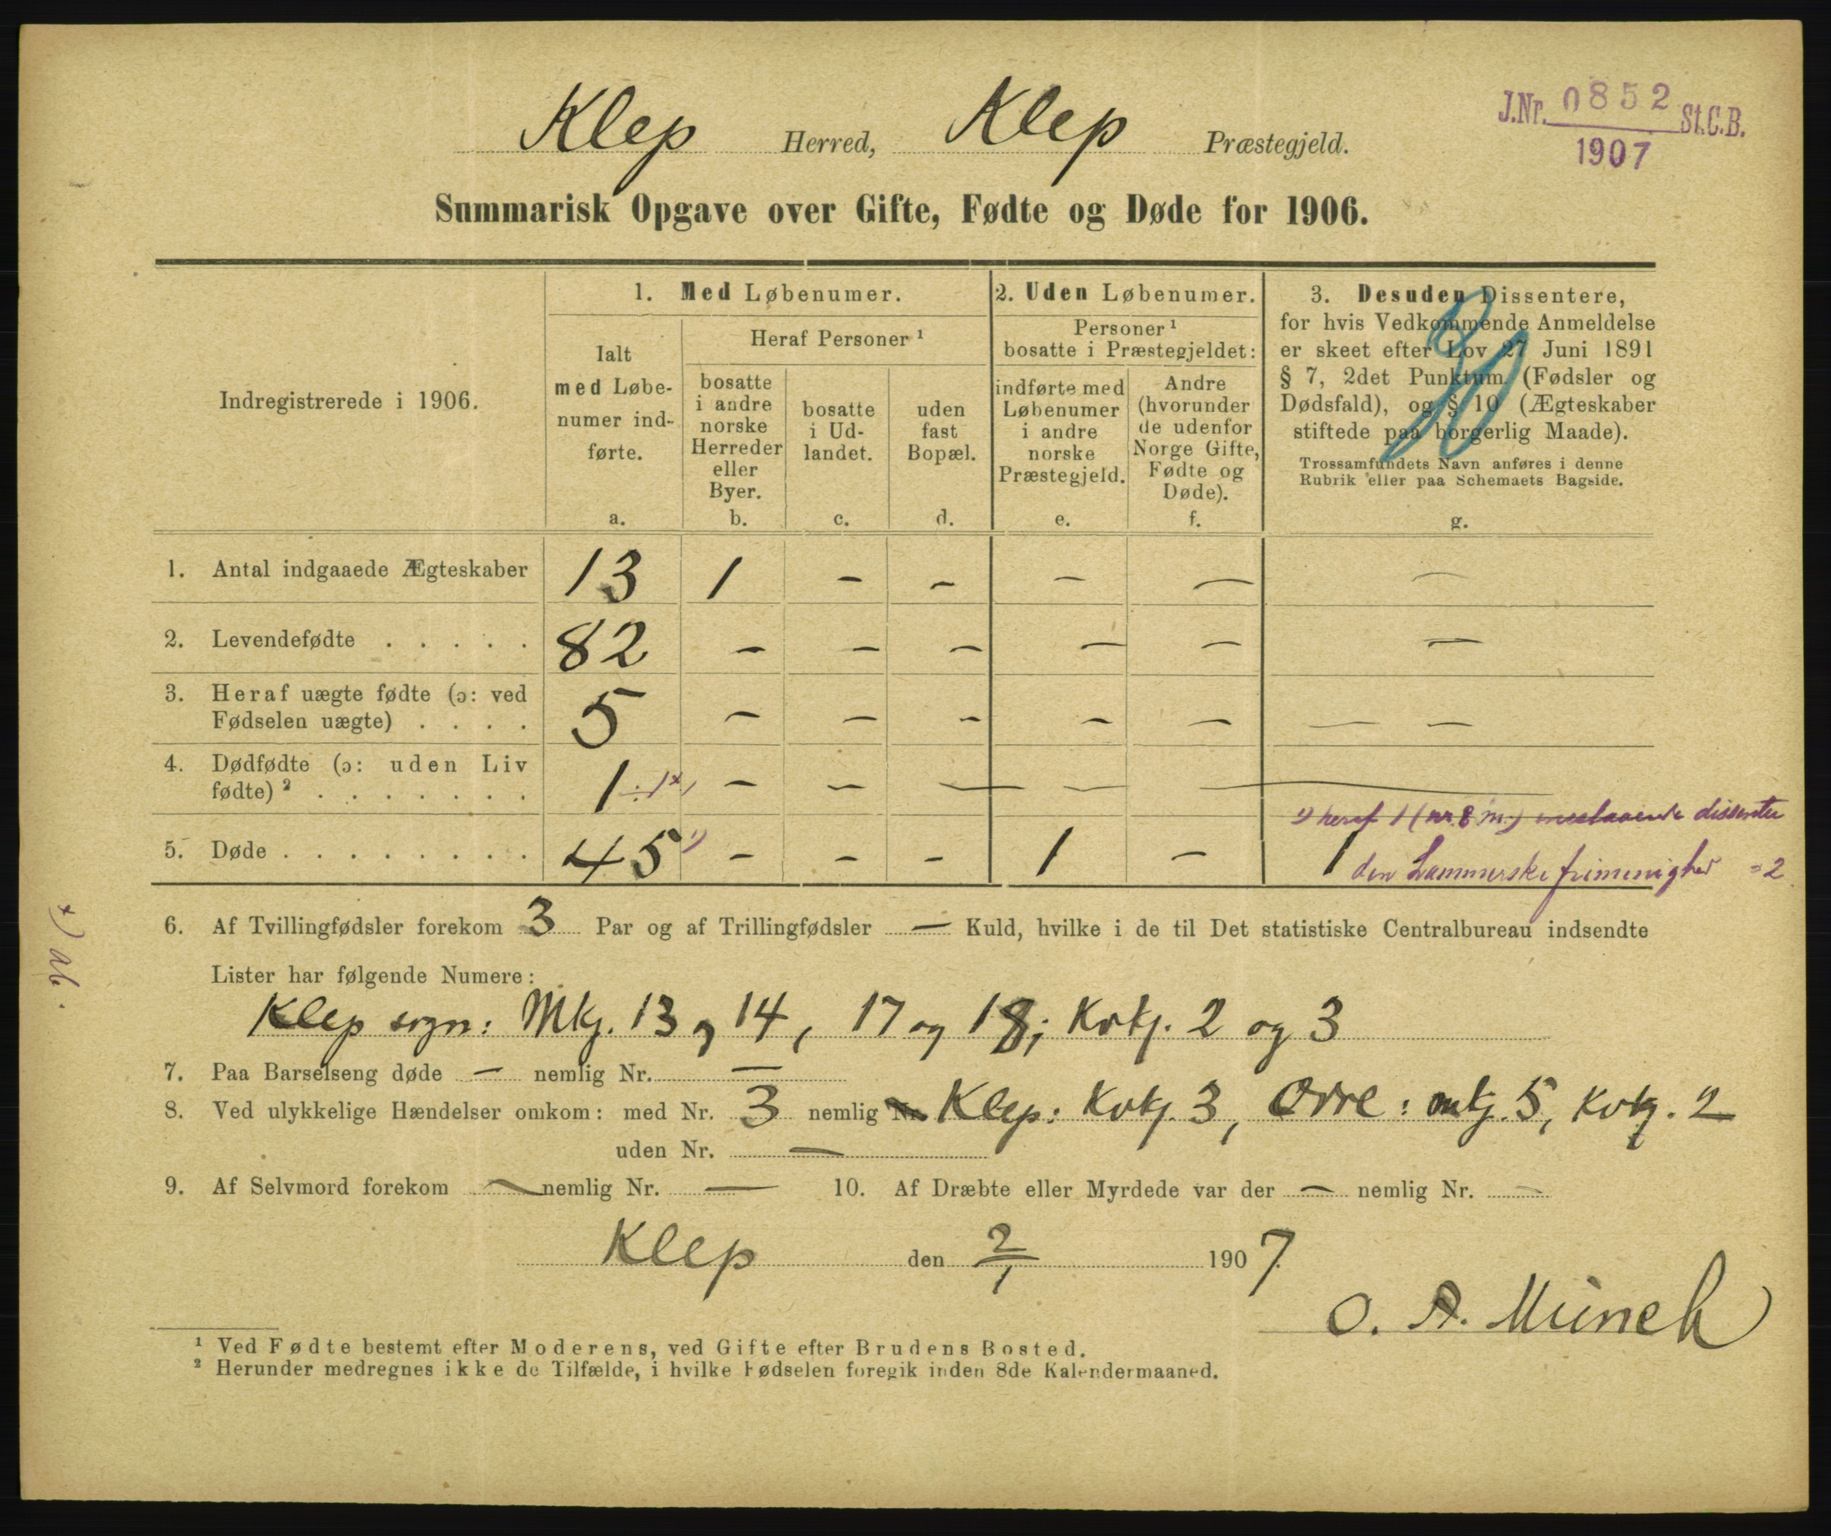 Klep Herred, Klep Præstegjeld.
J.Nr. 0852 St.C.B.
1907
Summarisk Opgave over Gifte, Fødte og Døde for 1906.
Indregistrerede i 1906.
1. Med Løbenumer.
Ialt med Løbenumer indførte.
a.
Heraf Personer ¹
bosatte i andre norske Herreder eller Byer.
b.
bosatte i Udlandet.
c.
uden fast Bopæl.
d.
2. Uden Løbenumer.
Personer ¹ bosatte i Præstegjeldet:
indførte med Løbenumer i andre norske Præstegjeld.
e.
Andre (hvorunder de udenfor Norge Gifte, Fødte og Døde).
f.
3. Desuden Dissentere,
for hvis Vedkommende Anmeldelse
er skeet efter Lov 27 Juni 1891
§ 7, 2det Punktum (Fødsler og
Dødsfald), og § 10 (Ægteskaber
stiftede paa borgerlig Maade).
Trossamfundets Navn anføres i denne
Rubrik eller paa Schemaets Bagside.
g.
1. Antal indgaaede Ægteskaber 13 1 – – – – –
2. Levendefødte . . . . . 82 – – – – – –
3. Heraf uægte fødte (ɔ: ved
Fødselen uægte) . . . . 5 – – – – – – –
4. Dødfødte (ɔ: uden Liv
fødte) ² . . . . . . . 1 ÷1ˣ) – – – – – –
¹) heraf 1 (nr. 8 m.) dissenter
5. Døde . . . . . . . . 45 ¹) – – – 1 – 1 den Lammerske frimenighed = 2
6. Af Tvillingfødsler forekom 3 Par og af Trillingfødsler – Kuld, hvilke i de til Det statistiske Centralbureau indsendte
Lister har følgende Numere:
Klep sogn: Mkj. 13 og 14, 17 og 18; Kvkj. 2 og 3
7. Paa Barselseng døde – nemlig Nr. –
8. Ved ulykkelige Hændelser omkom: med Nr. 3 nemlig Nr. Klep: Kvkj. 3, Orre: mkj. 5, Kvkj. 2
uden Nr. –
9. Af Selvmord forekom – nemlig Nr. – 10. Af Dræbte eller Myrdede var der – nemlig Nr. –
Klep den 2/1 1907.
O. A. Münch
¹ Ved Fødte bestemt efter Moderens, ved Gifte efter Brudens Bosted.
² Herunder medregnes ikke de Tilfælde, i hvilke Fødselen foregik inden 8de Kalendermaaned.
x) ab.